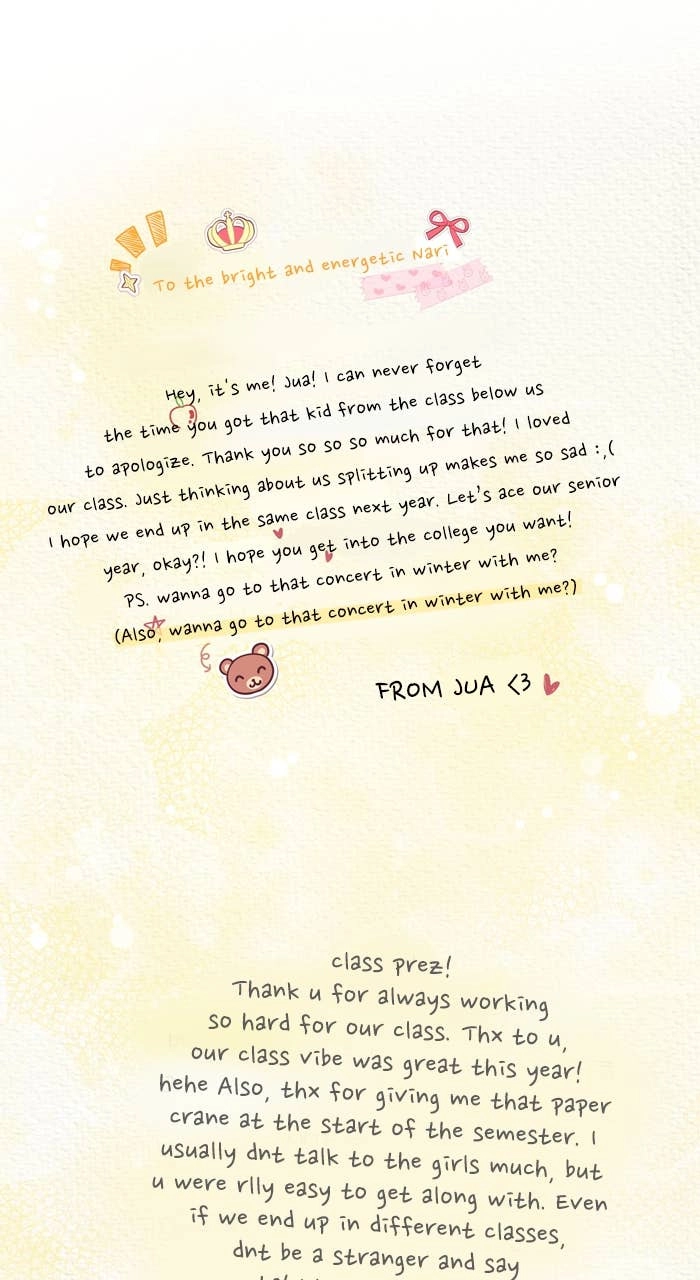 To the bright and energetic Nari
Hey, it's me! Jua! I can never forget
the time you got that kid from the class below us
to apologize. Thank you so so so much for that! I loved
our class. Just thinking about us splitting up makes me so sad :,(
I hope we end up in the same class next year. Let's ace our senior
year, okay?! I hope you get into the college you want!
PS. wanna go to that concert in winter with me?
(Also, wanna go to that concert in winter with me?)
FROM JUA <3
class prez!
Thank u for always working
so hard for our class. Thx to u,
our class vibe was great this year!
hehe Also, thx for giving me that paper
crane at the start of the semester. I
usually dnt talk to the girls much, but
u were rlly easy to get along with. Even
if we end up in different classes,
dnt be a stranger and say